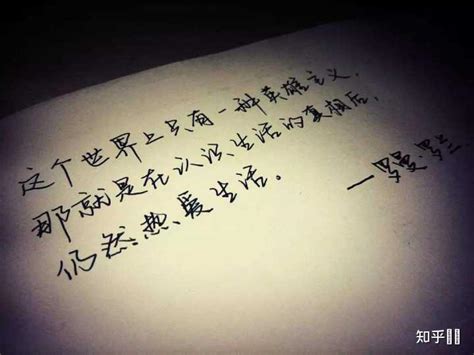 这个世界上只有一种英雄主义，
那就是在认识生活的真相后，
仍然热爱生活。
—罗曼·罗兰
知乎